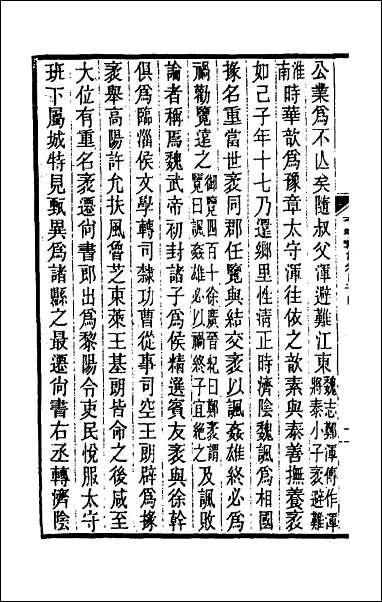 公業爲不亾矣隨叔父渾避難江東魏志鄭渾傳作渾將泰小子袤避難
淮南時華歆爲豫章太守渾往依之歆素與泰善撫養袤
如己子年十七乃還鄉里性清正時濟陰魏諷爲相國
掾名重當世袤同郡任覽與結交袤以諷姦雄終必爲
禍勸覽遠之御覽四百十徐廣晉紀曰鄭袤謂覽曰諷姦雄必以禍終子宜絶之及諷敗
論者稱焉魏武帝初封諸子爲侯精選賓友袤與徐幹
俱爲臨淄侯文學轉司隸功曹從事司空王朗辟爲掾
袤舉高陽許允扶風魯芝東萊王基朗皆命之後咸至
大位有重名袤遷尙書郎出爲黎陽令吏民悅服太守
班下屬城特見甄異爲諸縣之最遷尙書右丞轉濟陰